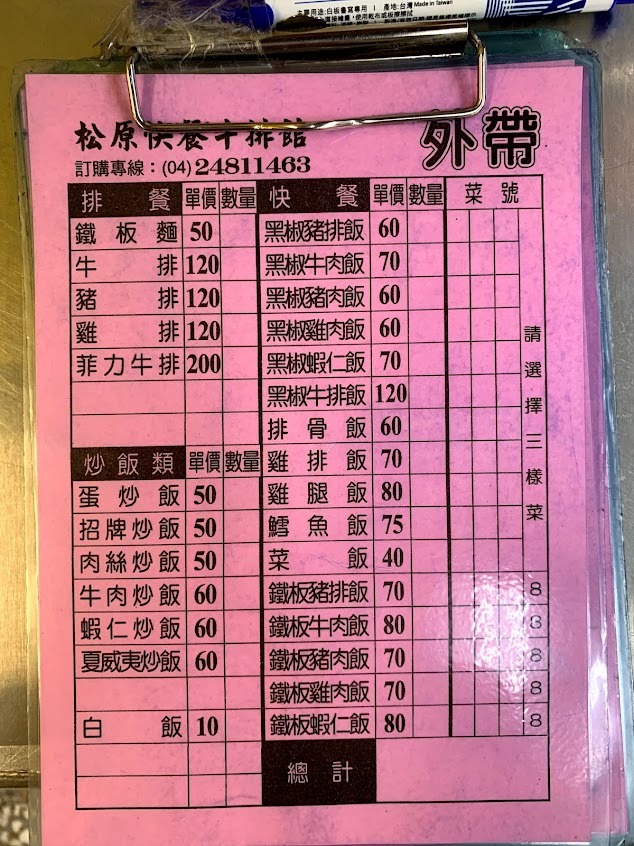 主要用途:白板書寫專用 | 產地:台灣 Made in Taiwan
松原快餐牛排館
外帶
訂購專線:(04)24811463
排餐 單價 數量 快餐 單價 數量 菜號
鐵板麵 50 黑椒豬排飯 60
牛排 120 黑椒牛肉飯 70
豬排 120 黑椒豬肉飯 60
雞排 120 黑椒雞肉飯 60
菲力牛排 200 黑椒蝦仁飯 70
黑椒牛排飯 120
排骨飯 60
炒飯類 單價 數量 雞排飯 70
蛋炒飯 50 雞腿飯 80
招牌炒飯 50 鱈魚飯 75
肉絲炒飯 50 菜飯 40
牛肉炒飯 60 鐵板豬排飯 70 8
蝦仁炒飯 60 鐵板牛肉飯 80 8
夏威夷炒飯 60 鐵板豬肉飯 70 8
鐵板雞肉飯 70 8
白飯 10 鐵板蝦仁飯 80 8
請選擇三樣菜
總計